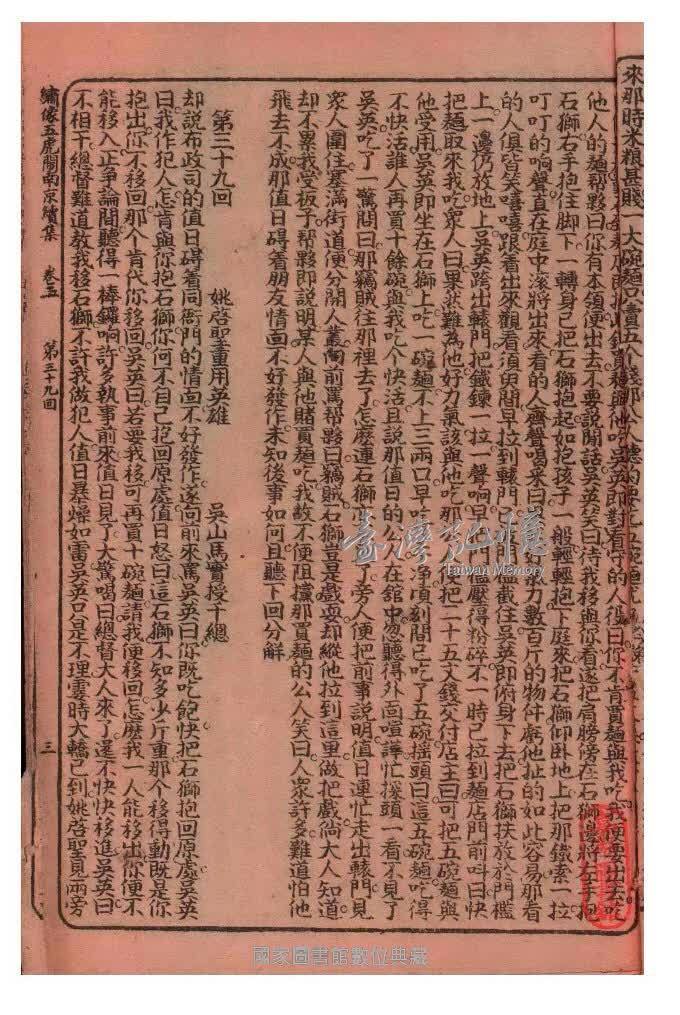 來那時米粮甚賤一大碗麵只賣五个錢那公人
他人的麵幫夥曰你有本領便出去不要說閒話吳英笑曰待我移與你看遂把肩膀傍在石獅邊將右手抱
石獅右手抱住脚下一轉身已把石獅抱起如抱孩子一般輕輕抱下庭來把石獅仰卧地上把那鐵索一拉
叮叮的响聲直在庭中滚將出來看的人齊聲喝采曰 氣力數百斤的物件虧他扯的如此容易那看
的人俱皆笑嘻嘻跟着出來觀看須臾間早拉到轅門已 門檻截住吳英即俯身下去把石獅扶放於門檻
上一邊仍放地上吳英跨出轅門把鐵鍊一拉一聲响早 門檻壓得粉碎不一時已拉到麵店門前叫曰快
把麵取來我吃眾人曰果然難為他好力氣該與他吃那 人便把二十五文錢交付店主曰可把五碗麵與
他受用吳英即坐在石獅上吃一碗麵不上三兩口早吃 淨頃刻間已吃了五碗搖頭曰這五碗麵吃得
不快活誰人再買十餘碗與我吃个快活且說那值日的公 在舘中忽聽得外面喧譁忙探頭一看不見了
吳英吃了一驚問曰那竊賊往那裡去了怎麼連石獅 了旁人便把前事說明值日連忙走出轅門見
眾人圍住塞滿街道便分開人叢向前罵幫夥曰竊賊石獅豈是戲耍却縱他拉到這里做把戲倘大人知道
却不累我受板子幫夥即說明某人與他賭買麵吃我故不便阻擋那買麵的公人笑曰人眾許多難道怕他
飛去不成那值日碍着朋友情面不好發作未知後事如何且聽下回分解
第三十九回 姚啓聖重用英雄 吳山馬實授千總
却説布政司的值日碍着同衙門的情面不好發作遂向前來罵吳英曰你既吃飽快把石獅抱回原處吳英
曰我作犯人怎肯與你抱石獅你何不自己抱回原處值日怒曰這石獅不知多少斤重那个移得動既是你
抱出你不移回那个肯代你移回吳英曰若要我移可再買十碗麵請我便移回怎麼我一人能移出你便不
能移入正爭論間聽得一棒鑼响許多執事前來值日見了大驚喝曰總督大人來了還不快快移進吳英曰
不相干總督難道教我移石獅不許我做犯人值日暴燥如雷吳英只是不理霎時大轎已到姚啓聖見兩旁
繡像五虎鬧南京續集 卷五 第三十九回 三
臺灣記憶
Taiwan Memory
國家圖書館數位典藏